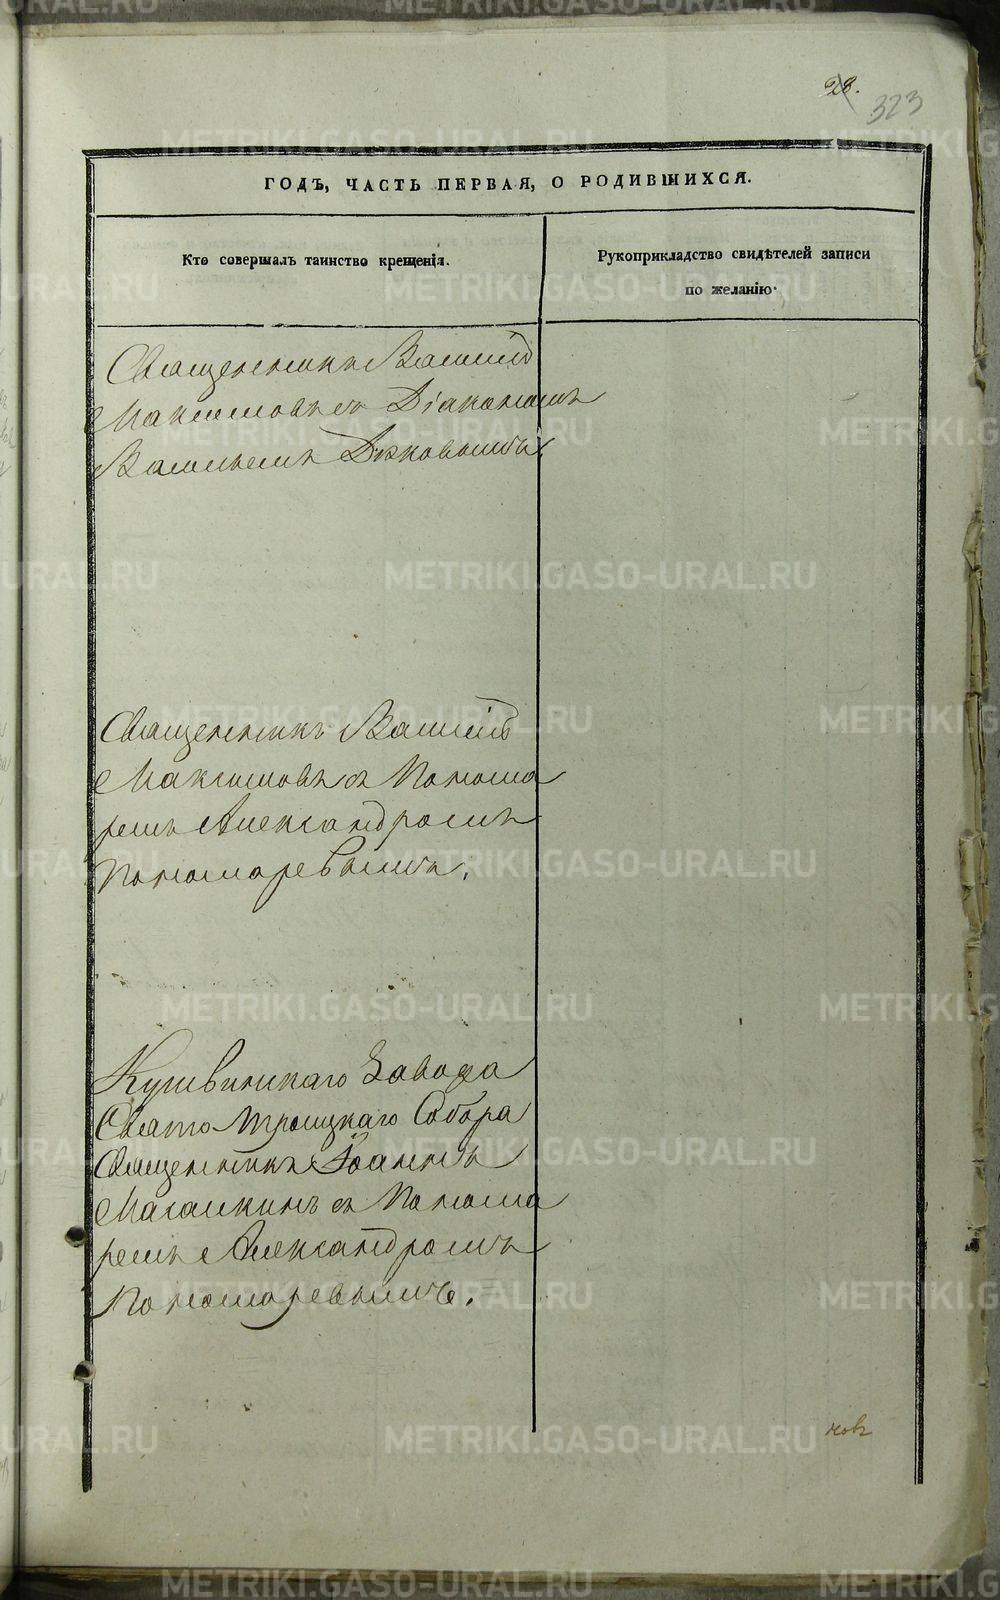 28.
323
ГОДЪ, ЧАСТЬ ПЕРВАЯ, О РОДИВШИХСЯ.
Кто совершалъ таинство крещенія.
Рукоприкладство свидѣтелей записи
по желанію.
Священникъ Василій
Максимовъ съ Діакономъ
Васильемъ Дьяковымъ.
Священникъ Василій
Максимовъ съ Понома
ремъ Александромъ
Пономаревымъ.
Кушвинскаго Завода
Свято-Троицкаго Собора
Священникъ Іоаннъ
съ Понома
ремъ Александромъ
Пономаревымъ.
METRIKI.GASO-URAL.RU